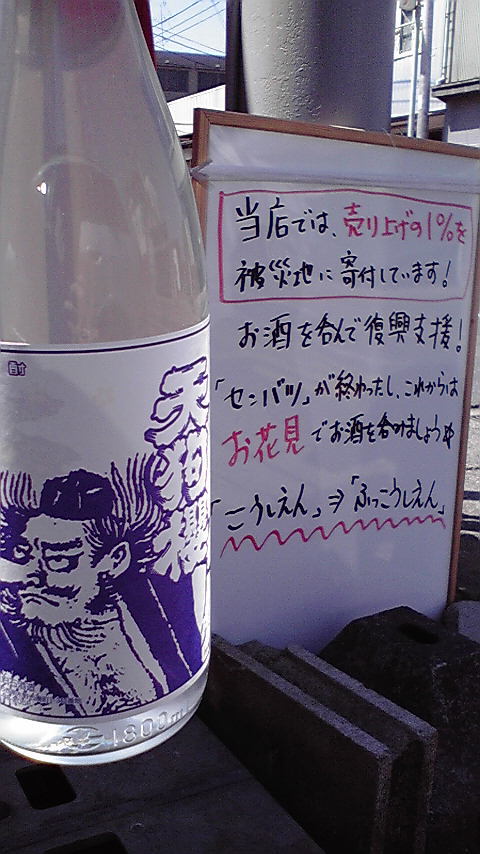 天狗櫻
酎
1800ml
当店では、売り上げの1%を
被災地に寄付しています!
お酒を呑んで復興支援!
「センバツ」が終わったし、これからは
お花見でお酒を呑みましょうや
「こうしえん」⇒「ふっこうしえん」